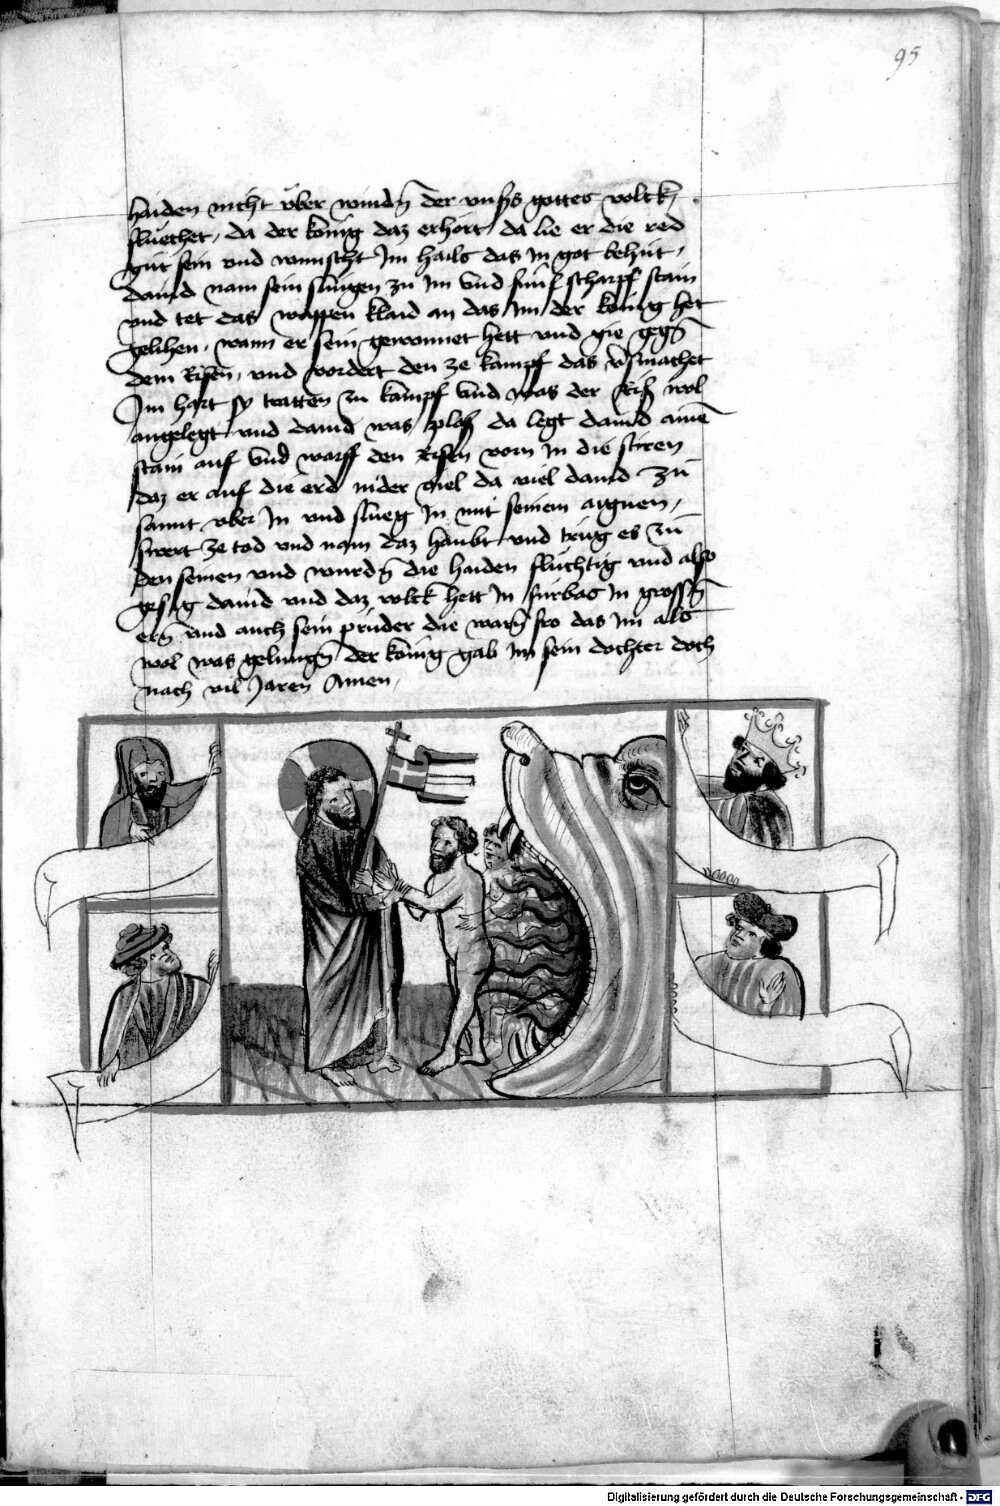 95
haiden nicht über windñ der vnsßs gottes volck
fluechet, da der konig daz erhort da lie er die red
gut sein vnd wunscht Im hails das in got behut,
dauid nam sein slingen zu im vnd funf scharpf stain
vnd tet das wappen klaid an das im der konig het
gelihen, wann er sein gewonnet hett vnd gie gegñ
dem Risen, vnd vordert den ze kampf das vsmachet
Im hart sy tratten zu kampf vnd was der Ris wol
angelegt vnd dauid was plos da legt dauid ainē
stain auf vnd warff den Risen vorn in die stiren
daz er auf die erd nider viel da viel dauid zu
sannt vber In vnd slueg In mit seinem aignen,
swert ze tod vnd nam daz haubt vnd trug es zu
den seinen vnd wurdñ die haiden fluchtig vnd also
gesigt dauid vnd daz volck hett In furbas In grossñ
erñ vnd auch sein pruder die warñ fro das im als
wol was gelungñ der konig gab im sein dochter doch
nach vil Jaren Amen,
Digitalisierung gefördert durch die Deutsche Forschungsgemeinschaft - DFG